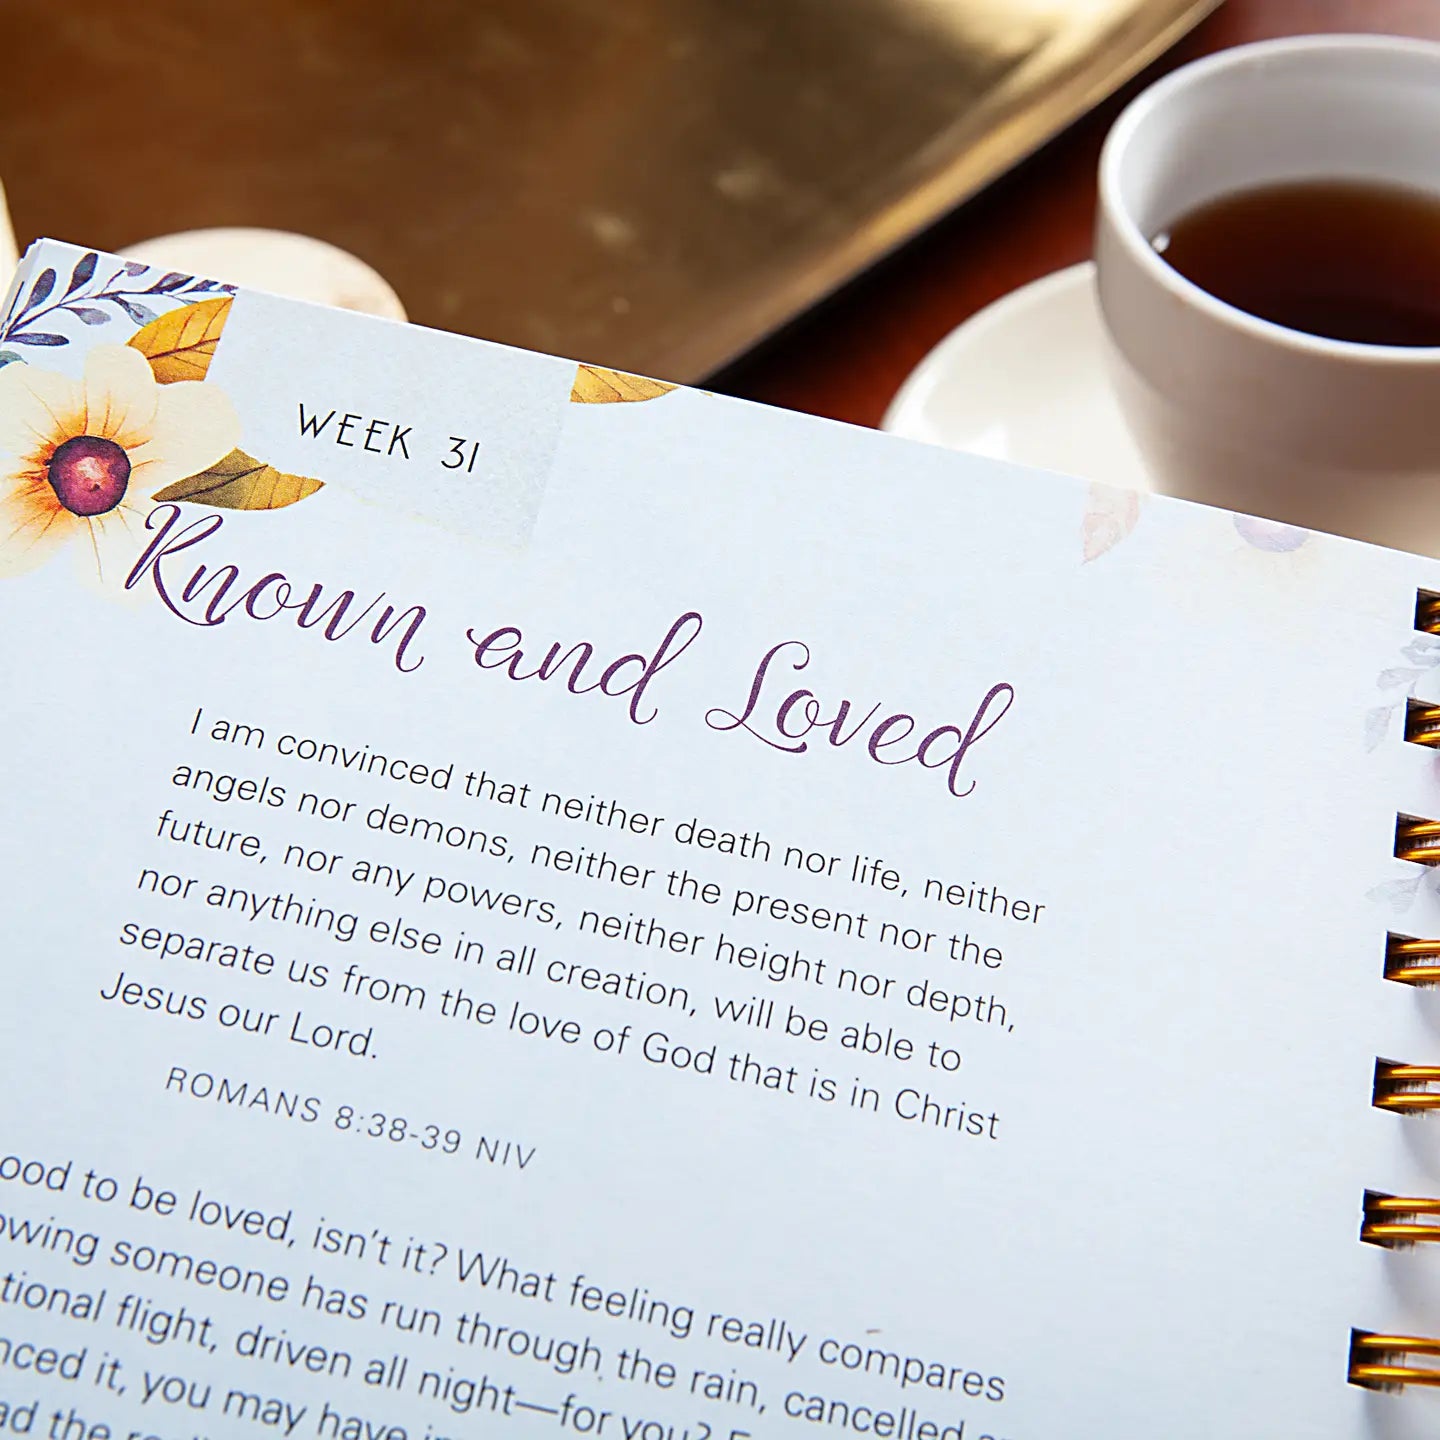 WEEK 31
Known and Loved
I am convinced that neither death nor life, neither
angels nor demons, neither the present nor the
future, nor any powers, neither height nor depth,
nor anything else in all creation, will be able to
separate us from the love of God that is in Christ
Jesus our Lord.
ROMANS 8:38-39 NIV
to be loved, isn't it? What feeling really compares
someone has run through the rain, cancelled
flight, driven all night—for you?
it, you may have
the